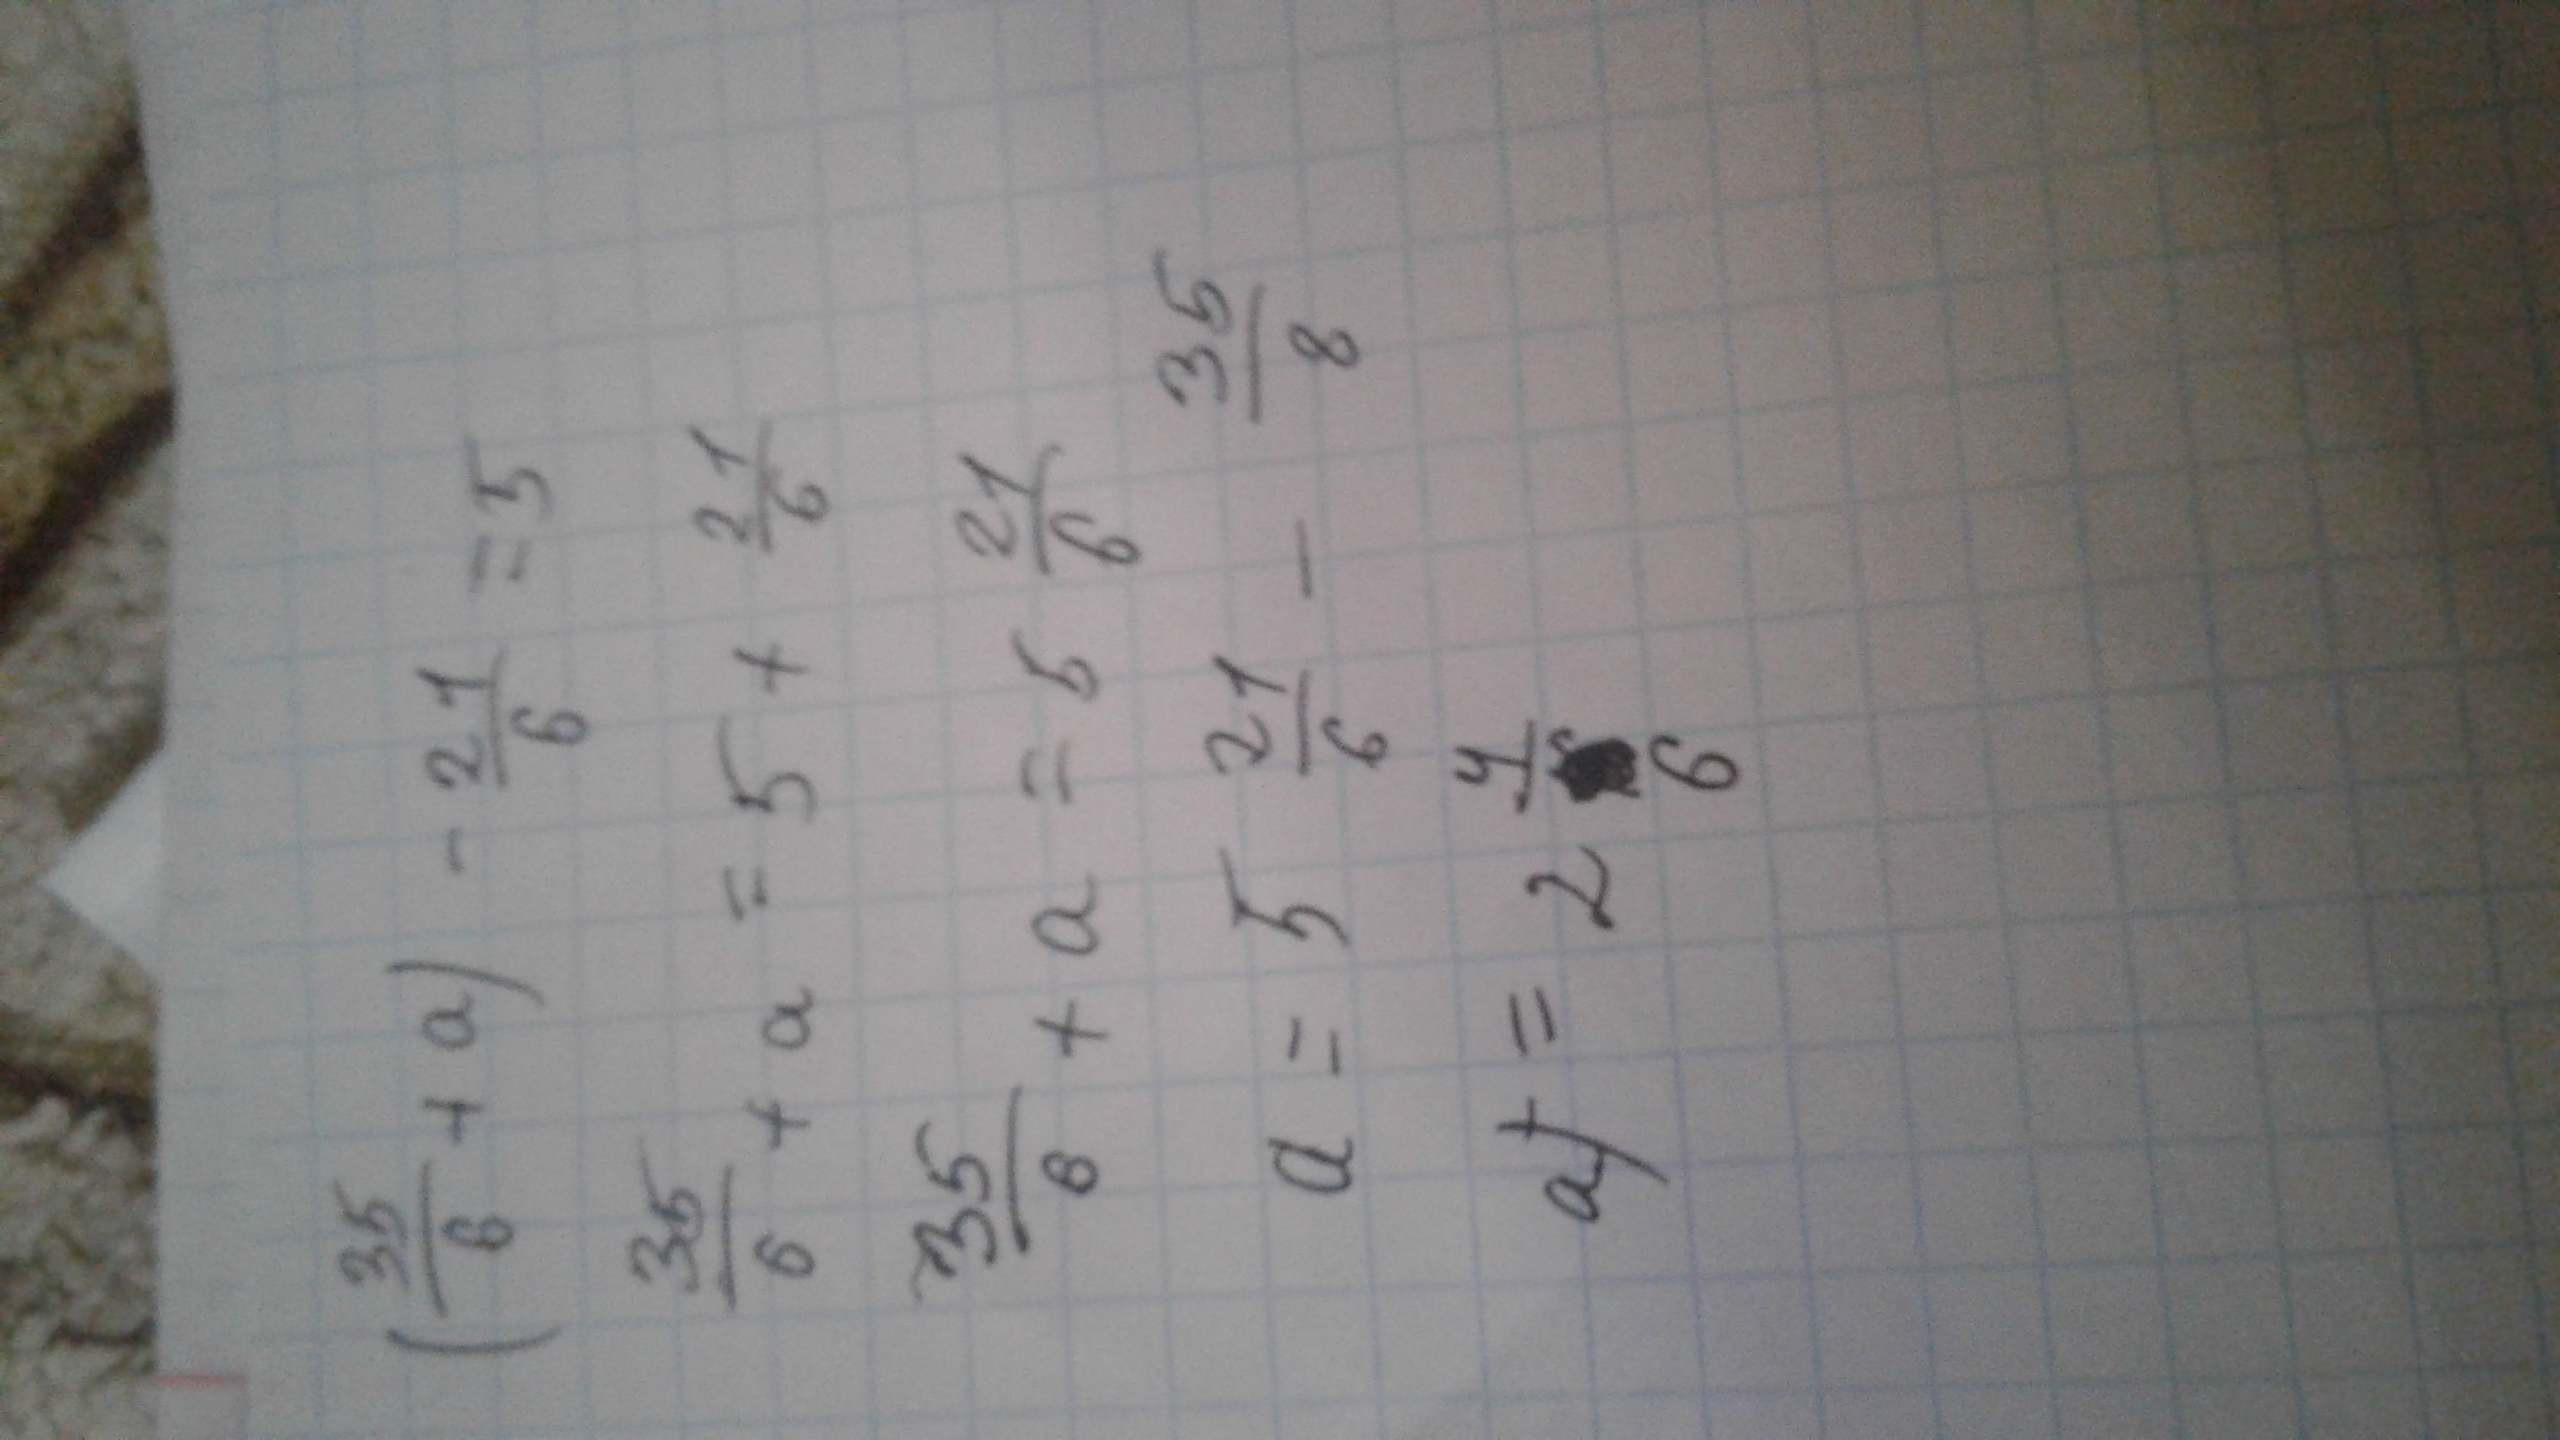 (35/6 + a) - 21/6 = 5
35/6 + a = 5 + 21/6
35/6 + a = 5 21/6
a = 5 21/6 - 35/8
a) = 2 4/6